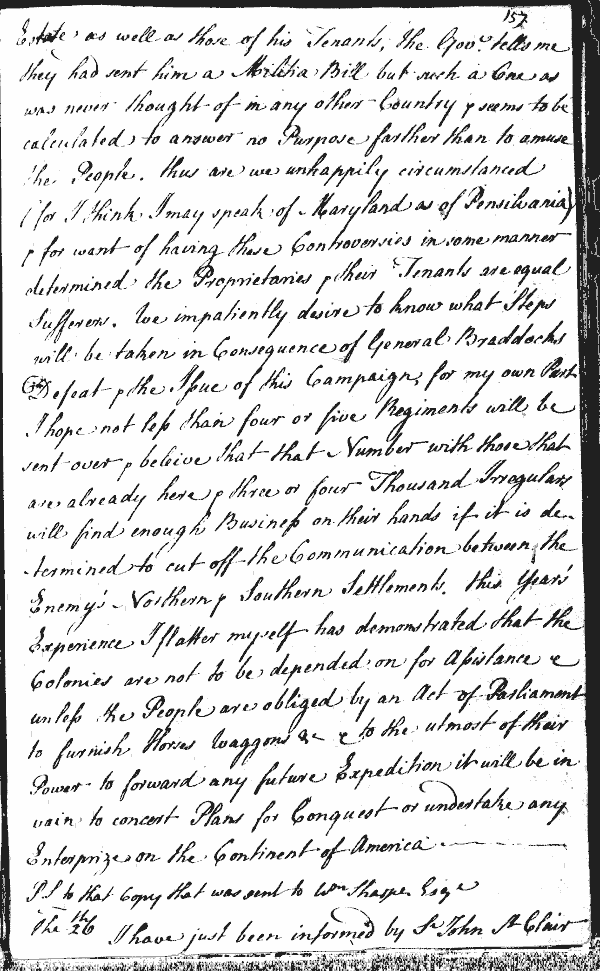 157
Estate as well as those of his Tenants, the Govr. tells me
they had sent him a Militia Bill but such a One as
was never thought of in any other Country & seems to be
calculated to answer no Purpose farther than to amuse
the People. thus are we unhappily circumstanced
(for I think I may speak of Maryland as of Pensilvania)
& for want of having these Controversies in some manner
determined the Proprietaries & their Tenants are equal
Sufferers. We impatiently desire to know what Steps
will be taken in Consequence of General Braddocks
Defeat & the Issue of this Campaign, for my own Part
I hope not less than four or five Regiments will be
sent over & beleive that that Number with those that
are already here & three or four Thousand Irregulars
will find enough Business on their hands if it is de-
termined to cut off the Communication between the
Enemy's Northern & Southern Settlements. this Years
Experience I flatter myself has demonstrated that the
Colonies are not to be depended on for Assistance &
unless the People are obliged by an Act of Parliament
to furnish Horses Waggons &c & to the utmost of their
Power to forward any future Expedition it will be in
vain to concert Plans for Conquest or undertake any
Enterprize on the Continent of America
P.S to that Copy that was sent to Wm Sharpe Esqr
The 26th I have just been informed by Sr John St Clair